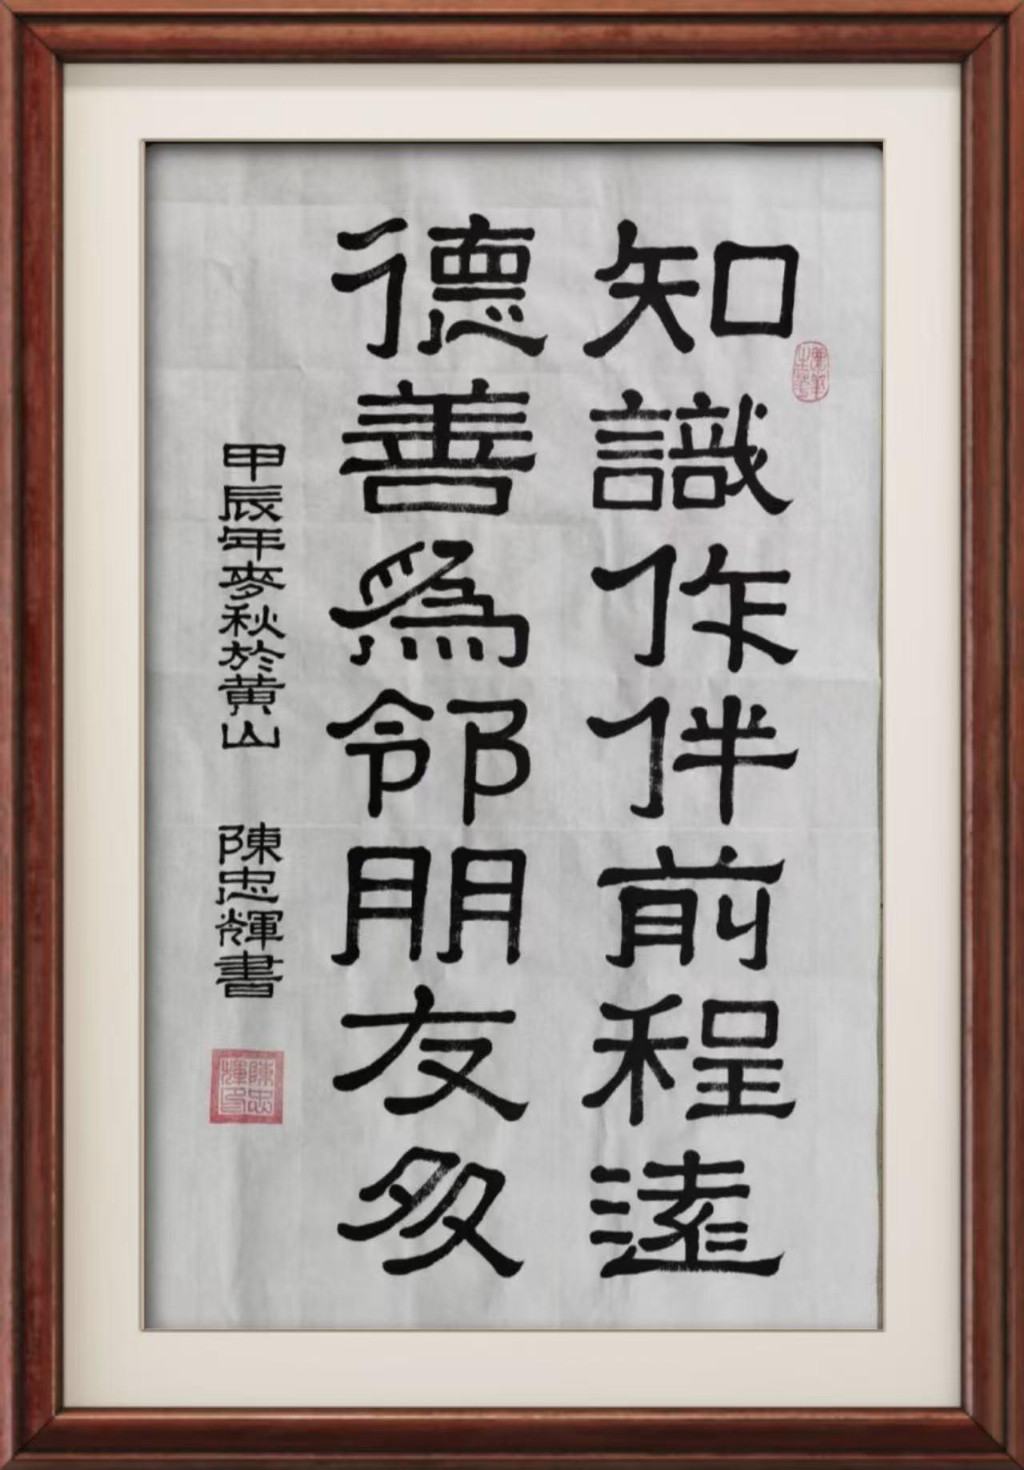 知識作伴前程遠
德善為鄰朋友多
甲辰年麥秋於黃山 陳忠輝書
陳忠輝印